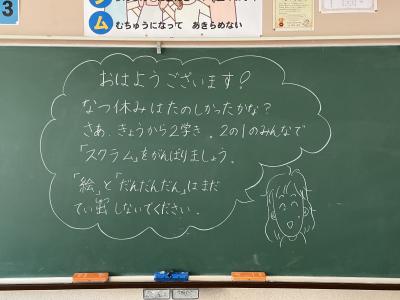 3
ム
むちゅうになって あきらめない
おはようございます!
なつ休みはたのしかったかな?
さあ、きょうから2学き。2の1のみんなで
「スクラム」をがんばりましょう。
「絵」と「だんだんだん」はまだ
てい出しないでください。